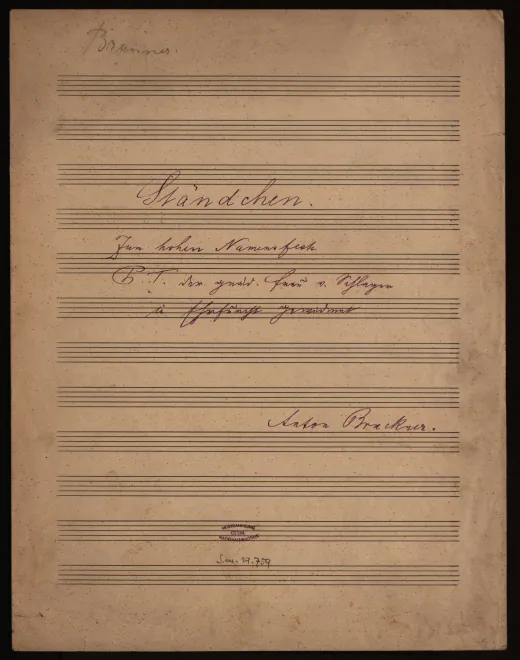 Ständchen.
Zum hohen Namensfeste
P. T. der gnäd. Frau v. Schlager
in Ehrfurcht gewidmet
Anton Bruckner.
S.m. 39.759